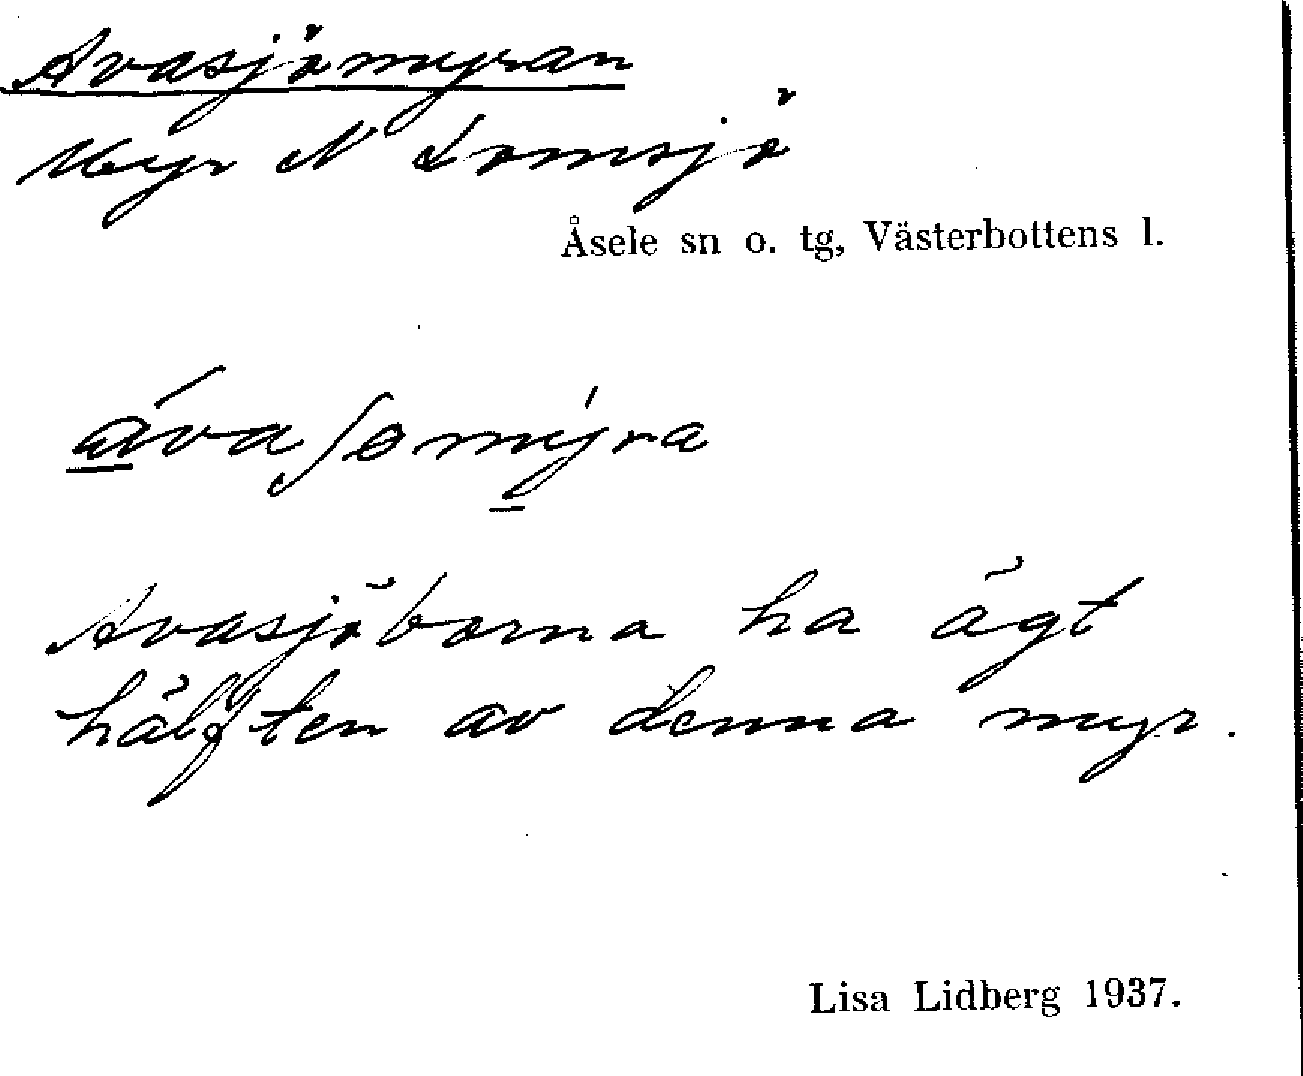 Avasjömyran
Myr N Lomsjö
Åsele sn o. tg, Västerbottens l.
ávaʃomýra
Avasjöborna ha ägt
hälften av denna myr.
Lisa Lidberg 1937.